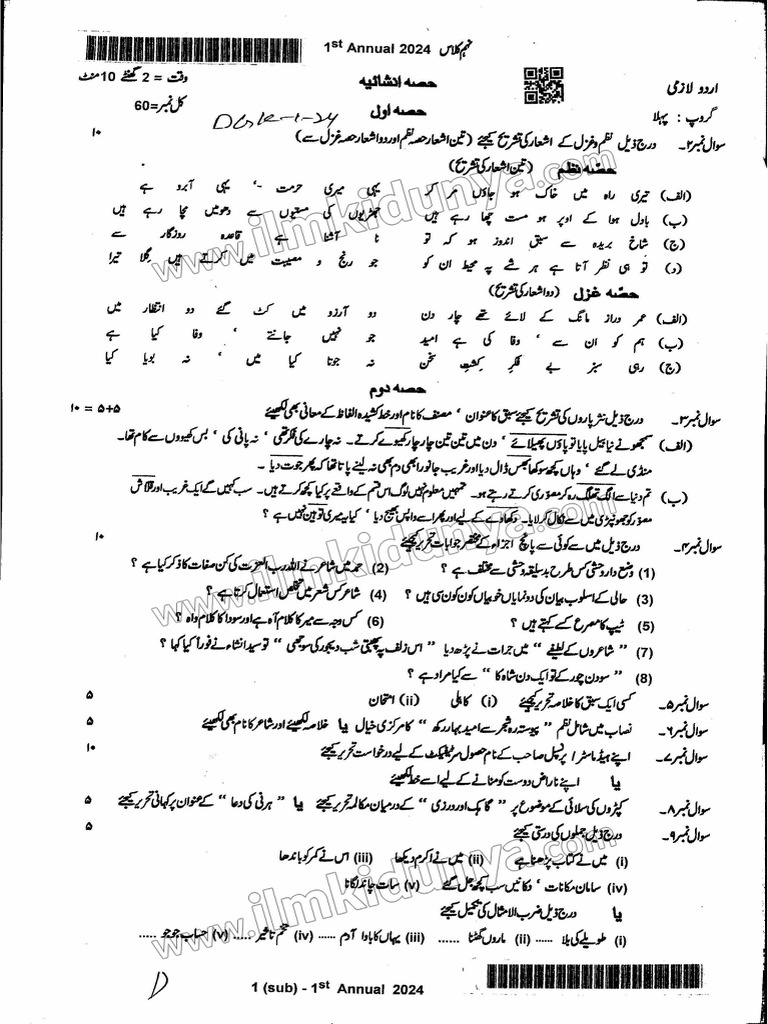 نہم کلاس 1st Annual 2024
اردو لازمی حصہ انشائیہ وقت = 2 گھنٹے 10 منٹ
گروپ : پہلا حصہ اول کل نمبر=60
سوال نمبر۲۔ درج ذیل نظم و غزل کے اشعار کی تشریح کیجئے (تین اشعار حصہ نظم اور دو اشعار حصہ غزل سے) ۱۰
حصہ نظم (تین اشعار کی تشریح)
(الف) تیری راہ میں خاک ہو جاؤں مر کر یہی میری حرمت -، یہی آبرو ہے
(ب) بادل ہوا کے اوپر ہو مست چھا رہے ہیں جھڑیوں کی مستیوں سے دھومیں مچا رہے ہیں
(ج) شاخ بریدہ سے سبق اندوز ہو کہ تو نا آشنا ہے قاعدہ روزگار سے
(د) تو ہی نظر آتا ہے ہر شے پہ محیط ان کو جو رنج و مصیبت میں کرتے ہیں گلا تیرا
حصّہ غزل (دو اشعار کی تشریح)
(الف) عمر دراز مانگ کے لائے تھے چار دن دو آرزو میں کٹ گئے دو انتظار میں
(ب) ہم کو ان سے ، وفا کی ہے امید جو نہیں جانتے ، وفا کیا ہے
(ج) رہی سبز بے فکرِ کشتِ سخن نہ جوتا کیا میں ، نہ بویا کیا
حصہ دوم
سوال نمبر۳۔ درج ذیل نثر پاروں کی تشریح کیجئے سبق کا عنوان ، مصنف کا نام اور خط کشیدہ الفاظ کے معانی بھی لکھیئے ۵+۵ = ۱۰
(الف) سمجھو نے نیا بیل پایا تو پاؤں پھیلائے ، دن میں تین تین چار چار کھیوے کرتے۔ نہ چارے کی فکر تھی ، نہ پانی کی ، بس کھیووں سے کام تھا۔
منڈی لے گئے ، وہاں کچھ سوکھا بھس ڈال دیا اور غریب جانور ابھی دم بھی نہ لینے پاتا تھا کہ پھر جوت دیا۔
(ب) تم دنیا سے الگ تھلگ رہ کر مصوری کرتے رہتے ہو۔ تمہیں معلوم نہیں لوگ اس قسم کے واقعے پر کیا کچھ کرتے ہیں۔ سب کہیں گے ایک غریب اور قلاش
مصور کو جھونپڑی میں سے نکال کر لایا۔ دکھاوے کے لیے اور پھر اسے واپس بھیج دیا ، کیا یہ میری توہین نہیں ہے ؟
سوال نمبر۴۔ درج ذیل میں سے کوئی سے پانچ اجزاء کے مختصر جوابات تحریر کیجئے ۱۰
(1) وضع دار وحشی کس طرح بدسلیقہ وحشی سے مختلف ہے ؟ (2) حمد میں شاعر نے اللہ رب العزت کی کن صفات کا ذکر کیا ہے ؟
(3) حالی کے اسلوب بیان کی دو نمایاں خوبیاں کون کون سی ہیں ؟ (4) شاعر کس شعر میں تخلص استعمال کرتا ہے ؟
(5) ٹیپ کا مصرع کسے کہتے ہیں ؟ (6) کس وجہ سے میر کا کلام آہ ہے اور سودا کا کلام واہ ؟
(7) ”شاعروں کے لطیفے“ میں جرات نے پڑھ دیا ”اس زلف پہ پھبتی شب دیجور کی سوجھی“ تو سید انشاء نے فوراً کیا کہا ؟
(8) ”سو دن چور کے تو ایک دن شاہ کا“ سے کیا مراد ہے ؟
سوال نمبر۵۔ کسی ایک سبق کا خلاصہ تحریر کیجئے (i) کاہلی (ii) امتحان ۵
سوال نمبر۶۔ نصاب میں شامل نظم ”پیوستہ رہ شجر سے امید بہار رکھ“ کا مرکزی خیال یا خلاصہ لکھیئے اور شاعر کا نام بھی لکھیئے ۵
سوال نمبر۷۔ اپنے ہیڈ ماسٹر / پرنسپل صاحب کے نام حصول سرٹیفکیٹ کے لیے درخواست تحریر کیجئے ۱۰
یا اپنے ناراض دوست کو منانے کے لیے اسے خط لکھیئے
سوال نمبر۸۔ کپڑوں کی سلائی کے موضوع پر ”گاہک اور درزی“ کے درمیان مکالمہ تحریر کیجئے یا ”ہرنی کی دعا“ کے عنوان پر کہانی تحریر کیجئے ۵
سوال نمبر۹۔ درج ذیل جملوں کی درستی کیجئے ۵
(i) میں نے کتاب پڑھنا ہے (ii) میں نے اکرم دیکھا (iii) اس نے کمر کو باندھا
(iv) سامان مکانات ، دکانیں سب کچھ جل گئے (v) سات چاند لگانا
یا درج ذیل ضرب الامثال کی تکمیل کیجئے
(i) طویلے کی بلا ...... (ii) ماروں گھٹنا ...... (iii) یہاں کا باوا آدم ...... (iv) تخم تاثیر ...... (v) حساب جو جو ......
D
1 (sub) - 1st Annual 2024
www.ilmkidunya.com
www.ilmkidunya.com
www.ilmkidunya.com